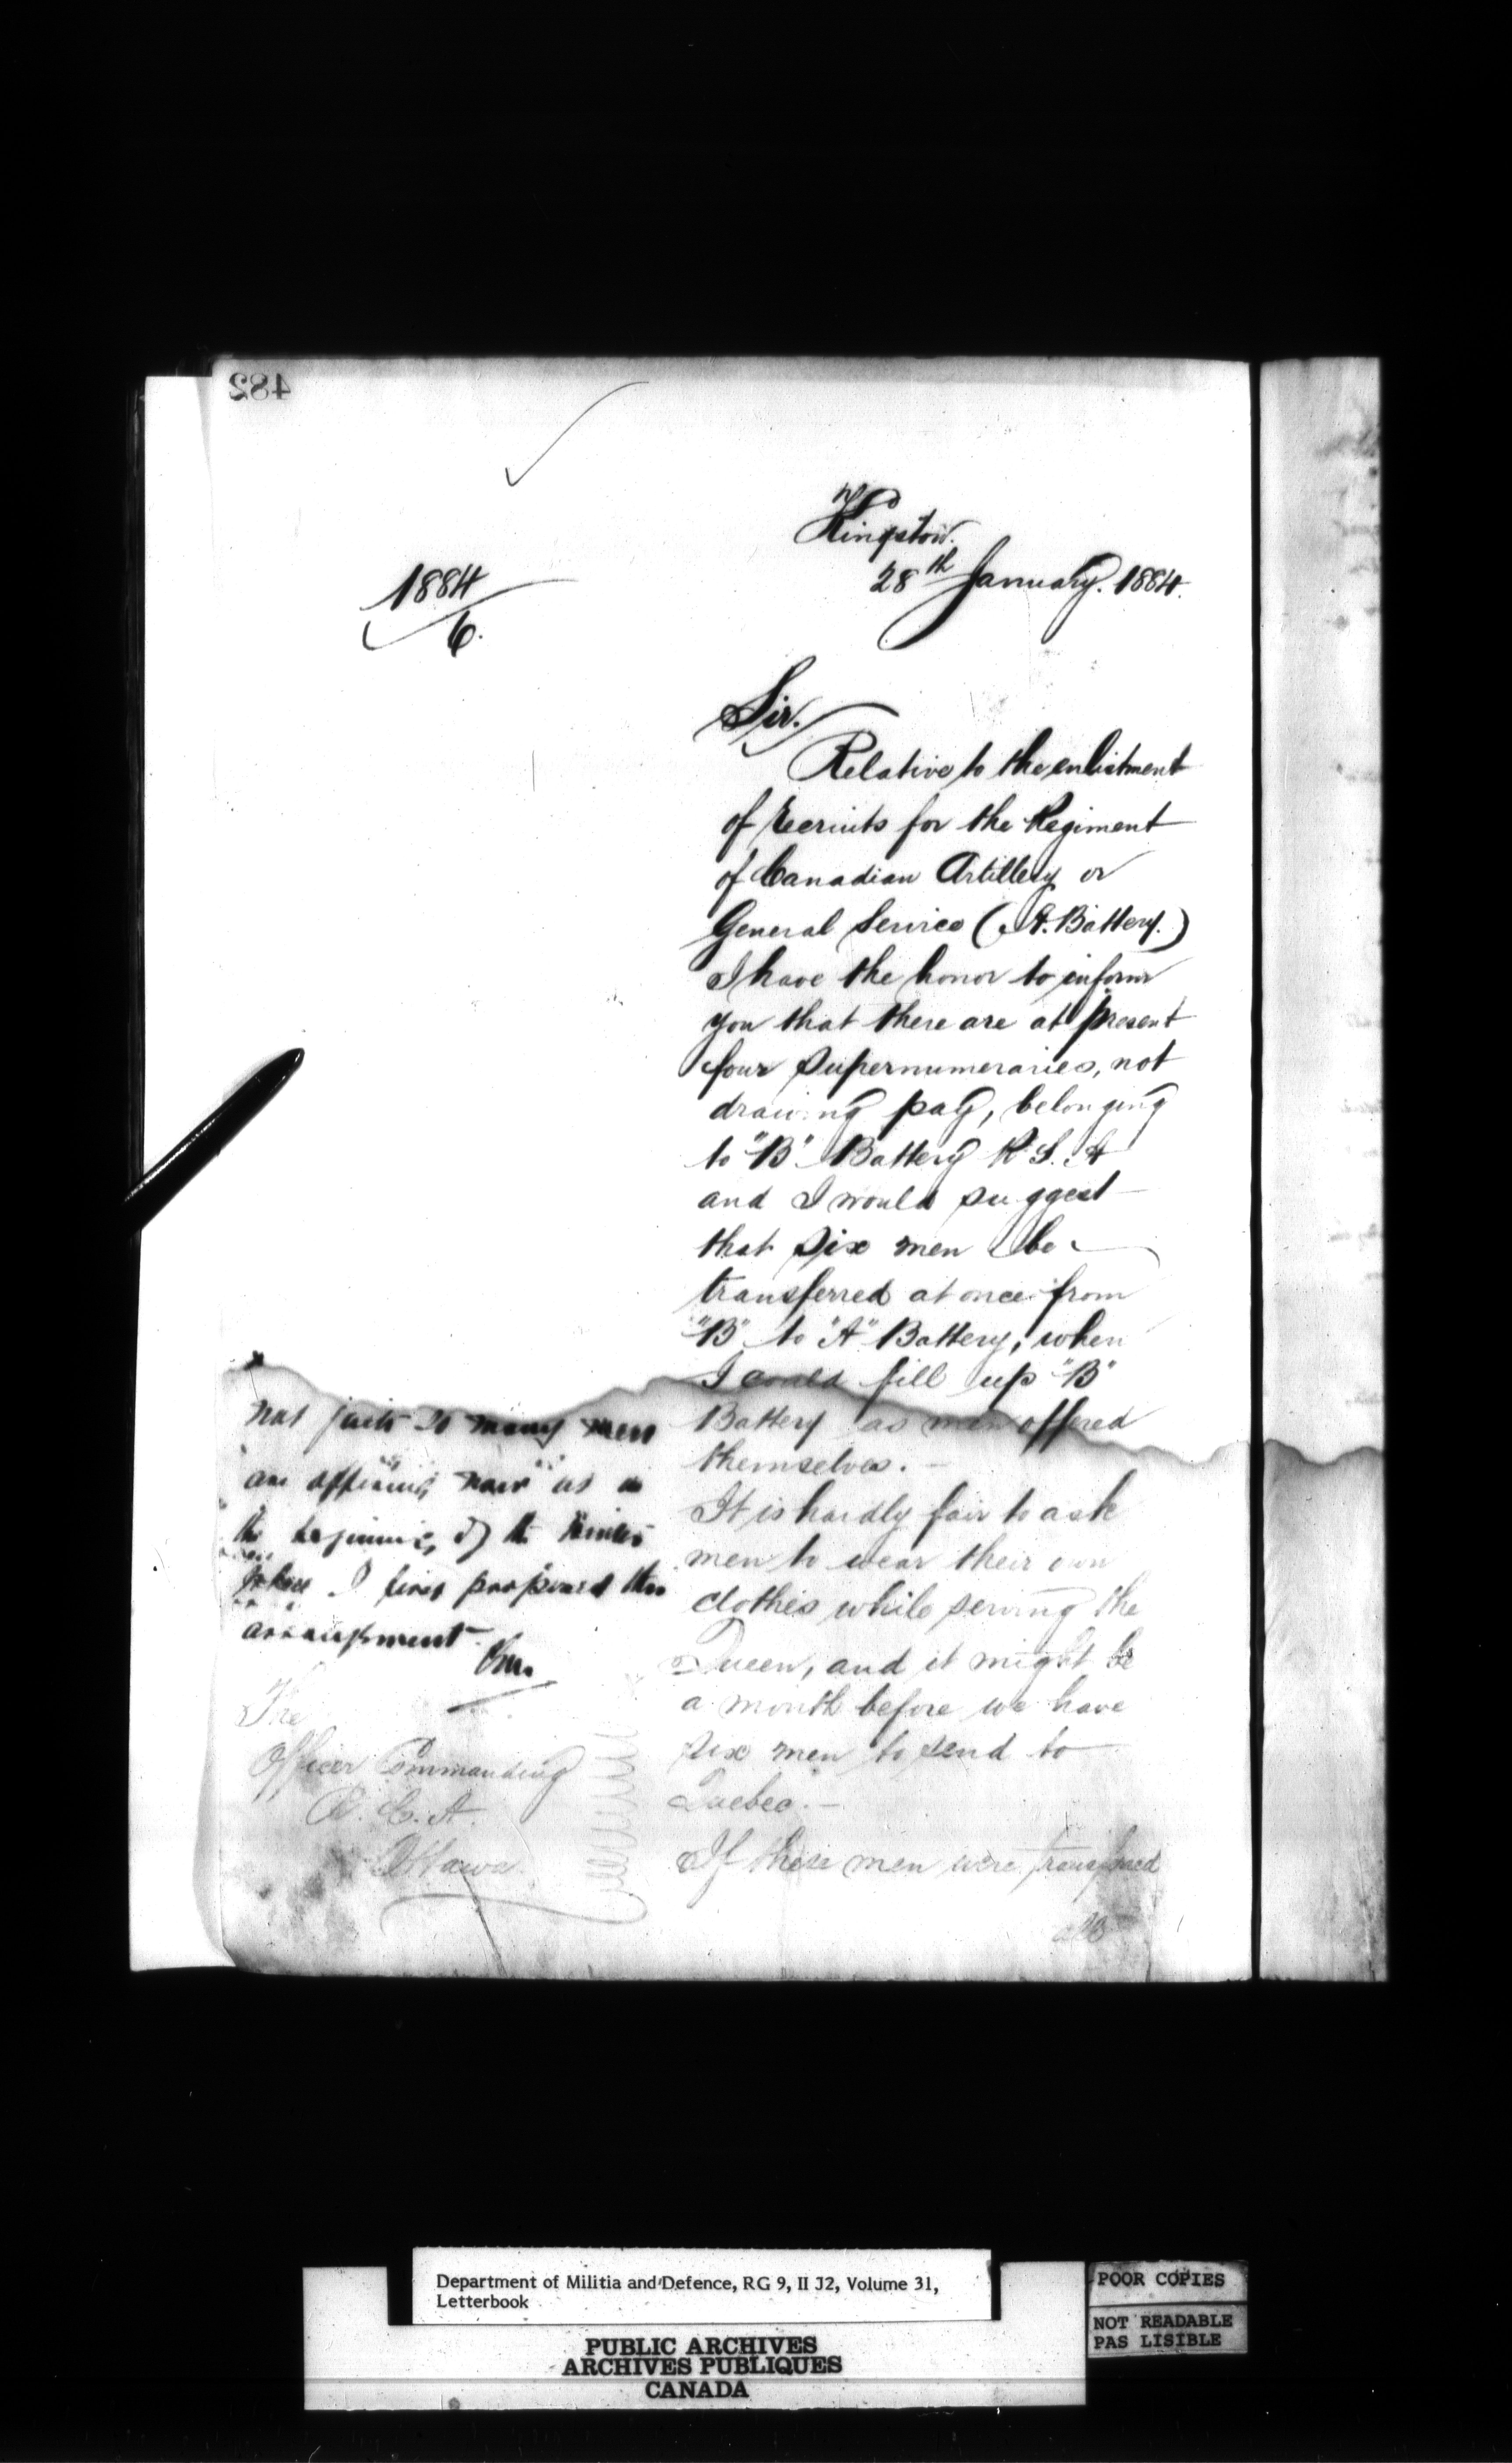 482
Kingston.
28th January. 1884.
1884
6.
Sir.
Relative to the enlistment
of recruits for the Regiment
of Canadian Artillery or
General Service (A. Battery.)
I have the honor to inform
you that there are at present
four supernumeraries, not
drawing pay, belonging
to "B" Battery R. S. A
and I would suggest
that six men be
transferred at once from
"B" to "A" Battery, when
I could fill up "B"
Battery as men offered
themselves. -
It is hardly fair to ask
men to wear their own
clothes while serving the
Queen, and it might be
a month before we have
six men to send to
Quebec. -
If these men were transferred
not quite so many men
are offering now as in
the beginning of the winter
when I first proposed this
arrangement.
The
Officer Commanding
R. C. A.
Ottawa.
Department of Militia and Defence, RG 9, II J2, Volume 31,
Letterbook
PUBLIC ARCHIVES
ARCHIVES PUBLIQUES
CANADA
POOR COPIES
NOT READABLE
PAS LISIBLE